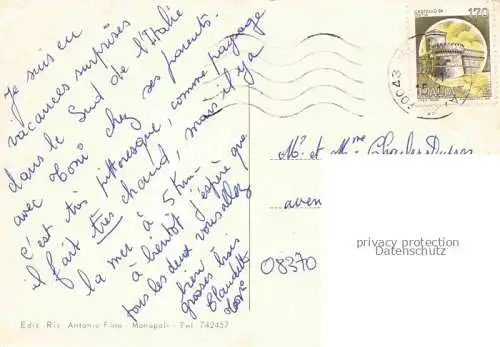 Je suis en
vacances surprises
dans le Sud de l'Italie
avec Toni chez ses parents.
C'est très pittoresque, comme paysage
il fait très chaud, mais il y a
la mer à 5 Km -
à bientôt j'espère que
tous les deux vous allez
bien
grosses bises
Claudette
CASTELLO DI
170
ITALIA
70043
Mr. et Mme Charles
aven
08370
privacy protection
Datenschutz
Ediz. Ris. Antonio Fino - Monopoli - Tel 742457